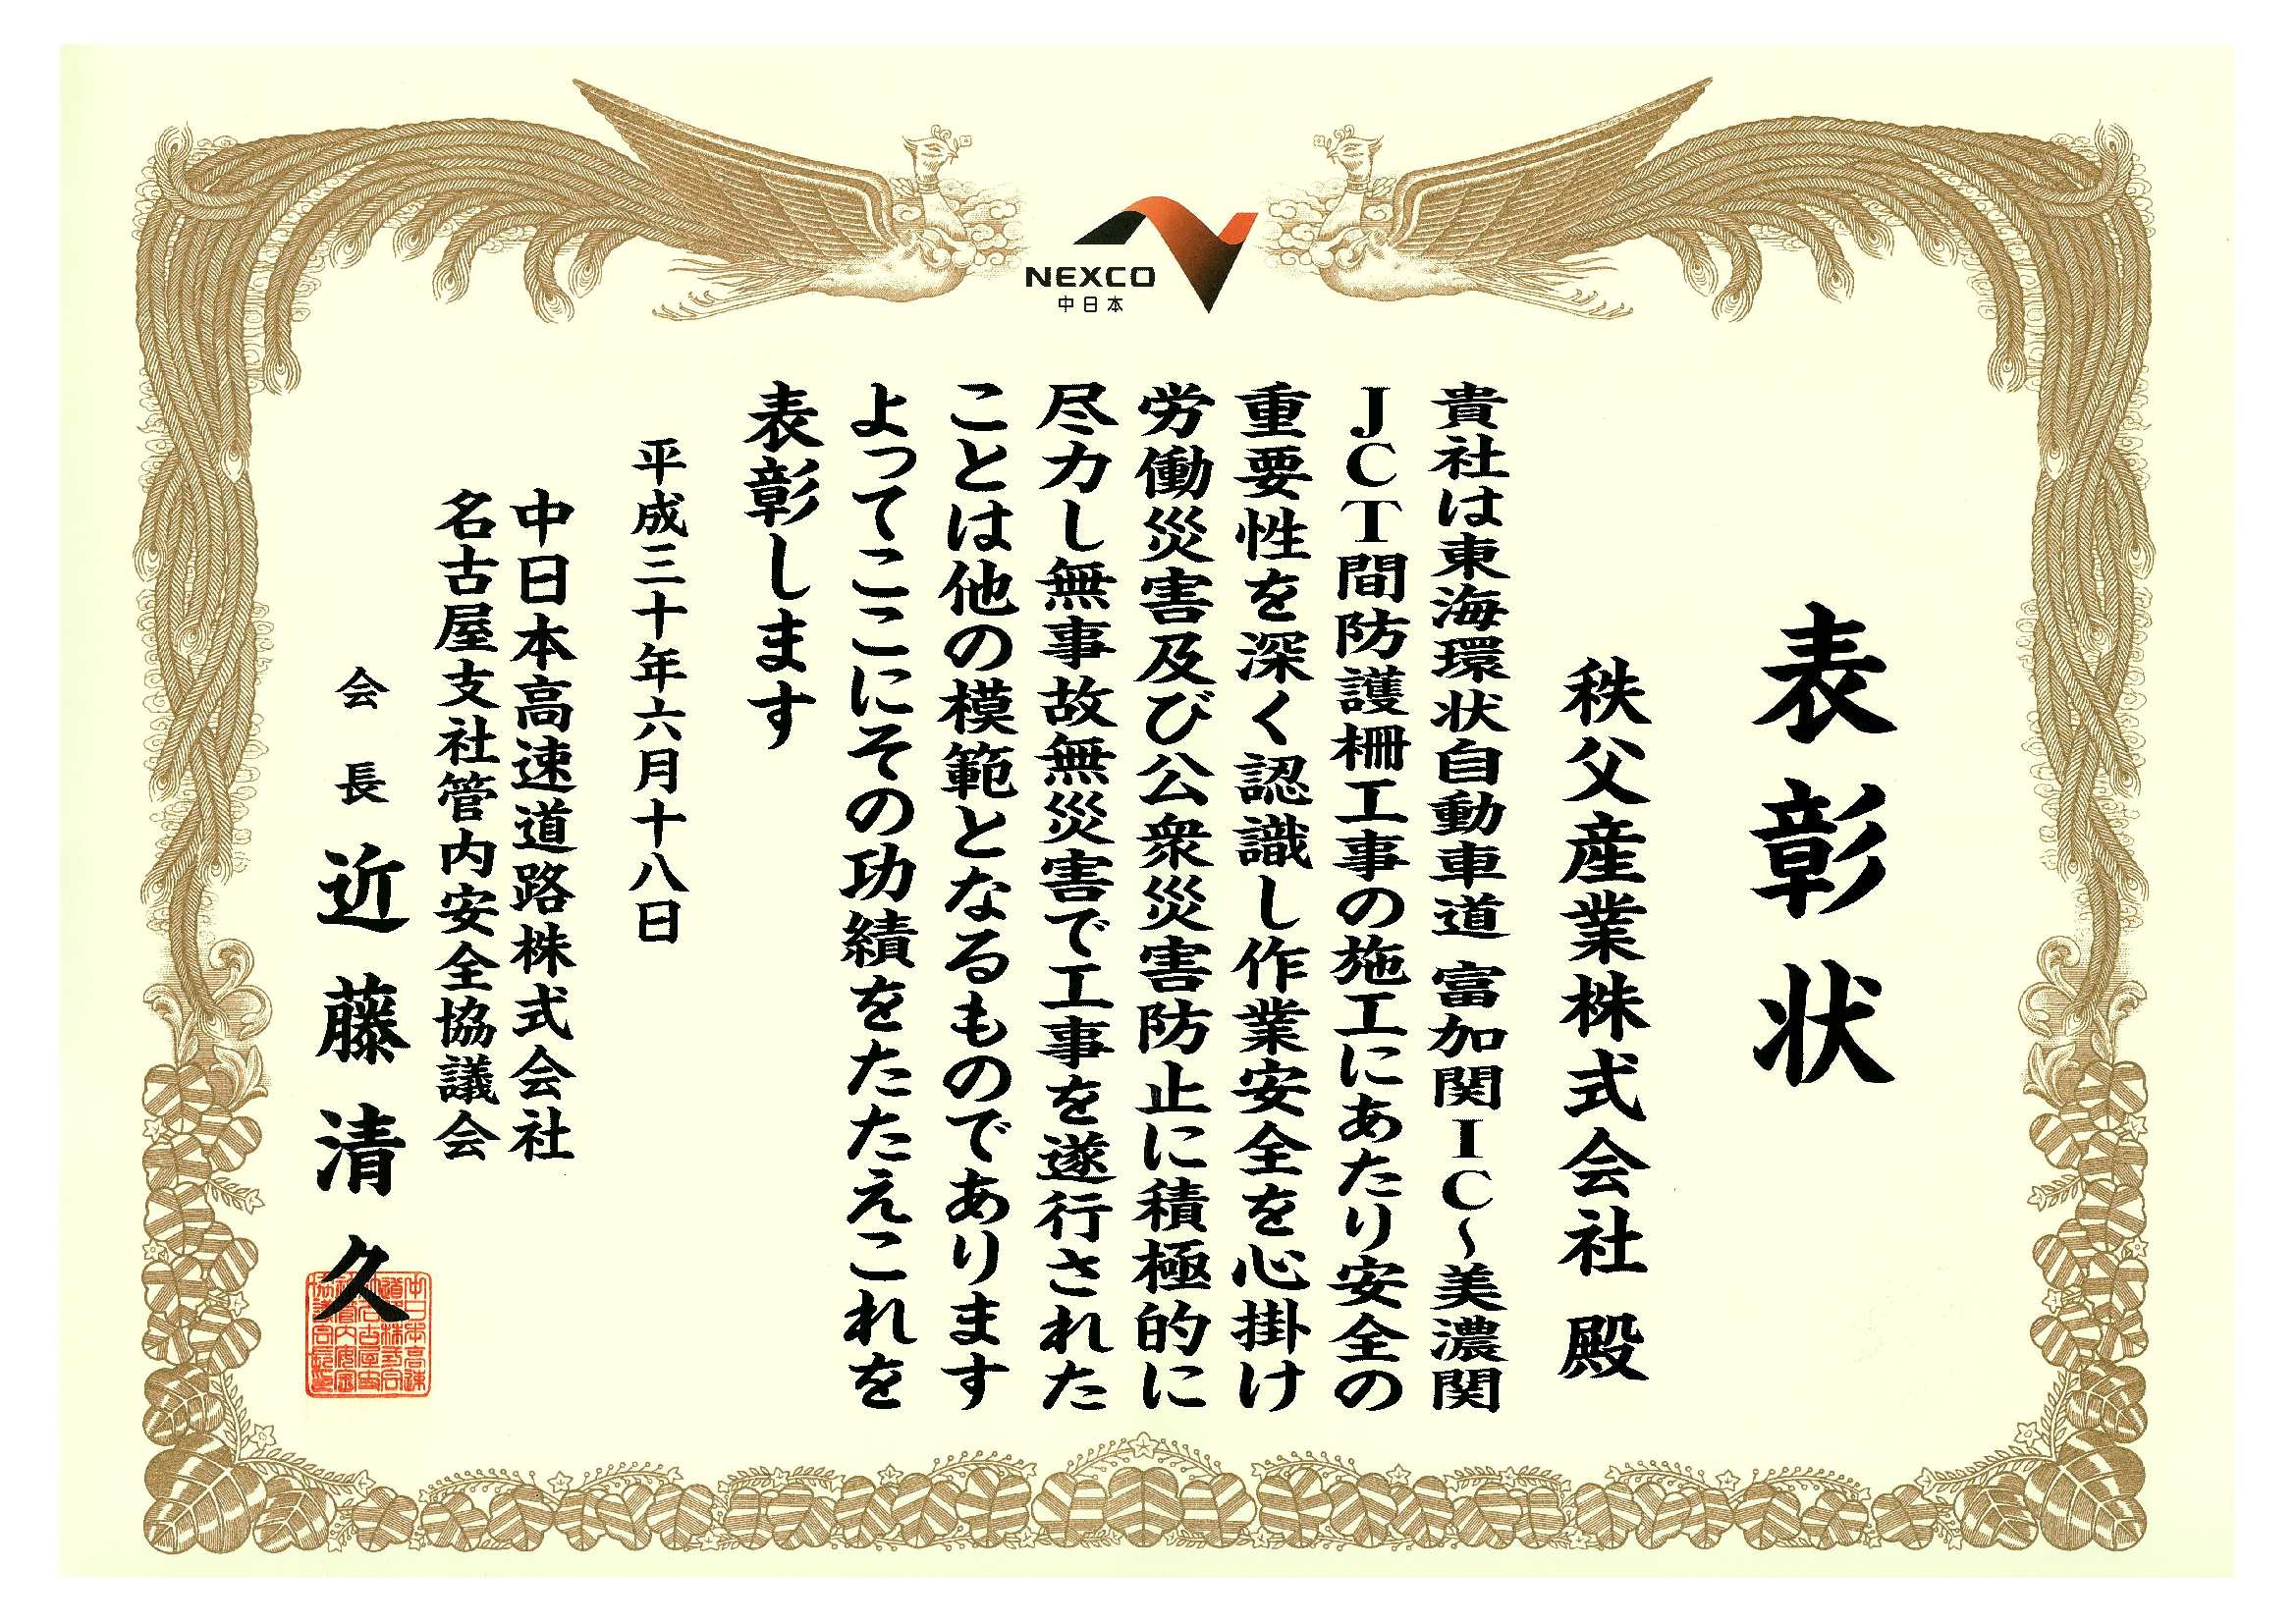 NEXCO
中日本
表彰状
秩父産業株式会社 殿
貴社は東海環状自動車道 富加関IC～美濃関
JCT間防護柵工事の施工にあたり安全の
重要性を深く認識し作業安全を心掛け
労働災害及び公衆災害防止に積極的に
尽力し無事故無災害で工事を遂行された
ことは他の模範となるものであります
よってここにその功績をたたえこれを
表彰します
平成三十年六月十八日
中日本高速道路株式会社
名古屋支社管内安全協議会
会長 近藤清久